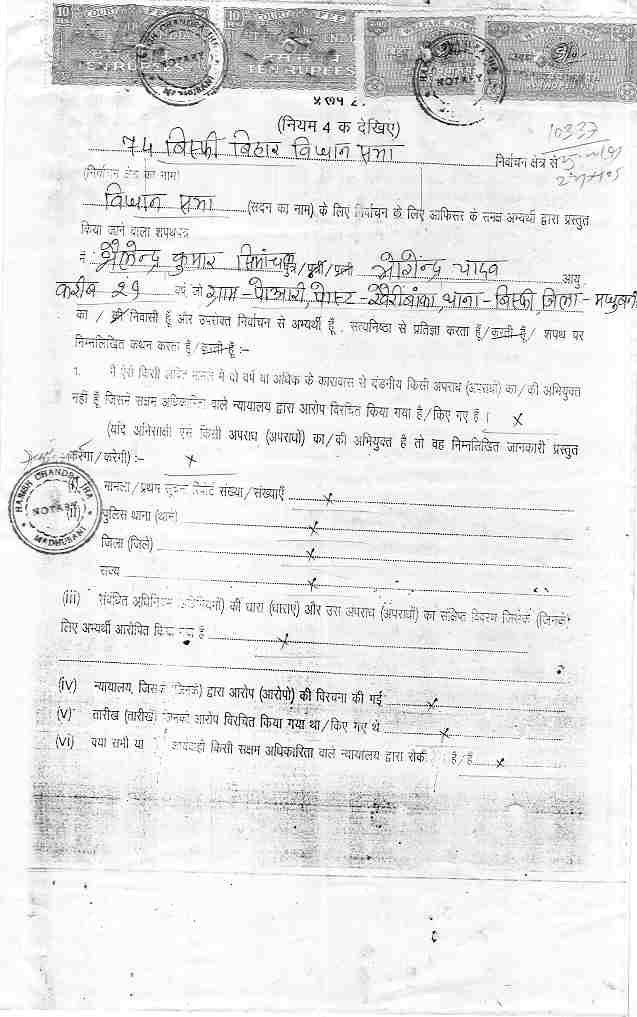 COURT FEE
TEN RUPEES
COURT FEE
TEN RUPEES
WELFARE STAMP
HARISH CHANDRA JHA
NOTARY
MADHUBANI
NOTARY
(नियम 4 क देखिए)
10337
74 बिस्फी बिहार विधान सभा निर्वाचन क्षेत्र से
(निर्वाचन क्षेत्र का नाम)
विधान सभा (सदन का नाम) के लिए निर्वाचन के लिए आफिसर के समक्ष अभ्यर्थी द्वारा प्रस्तुत
किया जाने वाला शपथपत्र
मैं शैलेन्द्र कुमार पुत्र/पुत्री/पत्नी योगेन्द्र यादव आयु
करीब 29 वर्ष, जो ग्राम-, पोस्ट-खैरीबांका, थाना-बिस्फी, जिला-मधुबनी
का / की निवासी हूँ और उपरोक्त निर्वाचन से अभ्यर्थी हूँ, सत्यनिष्ठा से प्रतिज्ञा करता हूँ/करती हूँ/ शपथ पर
निम्नलिखित कथन करता हूँ/करती हूँ :-
1. मैं ऐसे किसी लंबित मामले में दो वर्ष या अधिक के कारावास से दंडनीय किसी अपराध (अपराधों) का/की अभियुक्त
नहीं हूँ जिसमें सक्षम अधिकारिता वाले न्यायालय द्वारा आरोप विरचित किया गया है/किए गए हैं । x
(यदि अभिसाक्षी ऐसे किसी अपराध (अपराधों) का/की अभियुक्त है तो वह निम्नलिखित जानकारी प्रस्तुत
करेगा / करेगी) :- x
HARISH CHANDRA JHA
NOTARY
MADHUBANI
(i) मामला/प्रथम सूचना रिपोर्ट संख्या/संख्याएँ x
(ii) पुलिस थाना (थाने) x
जिला (जिले) x
राज्य x
(iii) संबंधित अधिनियम (अधिनियमों) की धारा (धाराएं) और उस अपराध (अपराधों) का संक्षिप्त विवरण जिसके (जिनके)
लिए अभ्यर्थी आरोपित किया गया है x
(iv) न्यायालय, जिसके (जिनके) द्वारा आरोप (आरोपो) की विरचना की गई x
(v) तारीख (तारीखें) जिनको आरोप विरचित किया गया था/किए गए थे x
(vi) क्या सभी या कार्यवाही किसी सक्षम अधिकारिता वाले न्यायालय द्वारा रोकी है/हैं x